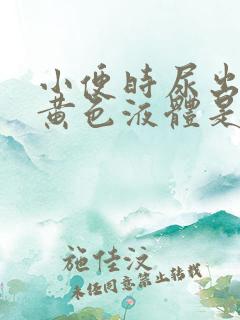 小便時尿出
黄色液體是
施佳汶
未任同意禁止转载